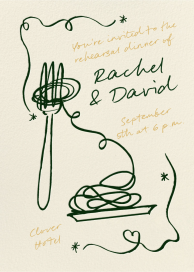 You're invited to the
rehearsal dinner of
Rachel
& David
September
5th at 6 p.m.
Clover
Hotel